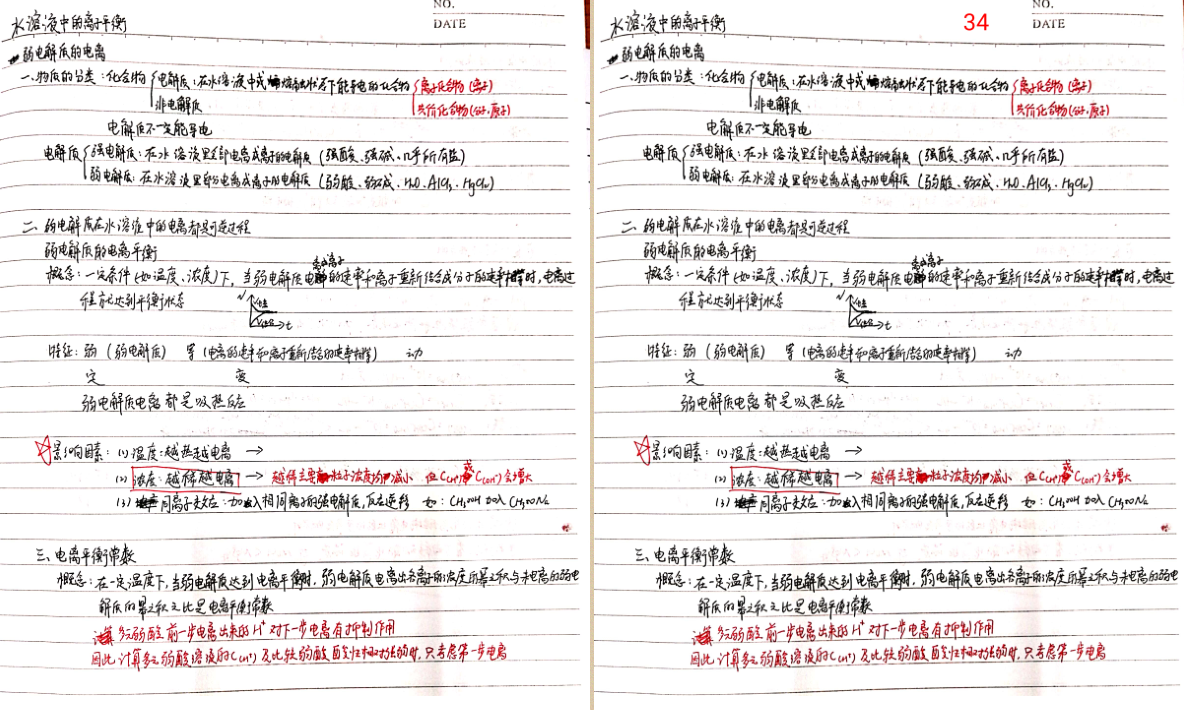 NO.
水溶液中的离子平衡
DATE
弱电解质的电离
一、物质的分类：化合物 电解质：在水溶液中或熔融状态下能导电的化合物 离子化合物（离子）
非电解质 共价化合物（分子、原子）
电解质不一定能导电
电解质 强电解质：在水溶液里全部电离成离子的电解质（强酸、强碱、几乎所有盐）
弱电解质：在水溶液里部分电离成离子的电解质（弱酸、弱碱、H2O、AlCl3、HgCl2）
二、弱电解质在水溶液中的电离都是可逆过程
弱电解质的电离平衡
概念：一定条件（如温度、浓度）下，当弱电解质电离的速率和离子重新结合成分子的速率相等时，电离过
程就达到平衡状态
V
t
特征：弱（弱电解质） 等（电离的速率和离子重新结合的速率相等） 动
定 变
弱电解质电离都是吸热反应
影响因素：(1) 温度：越热越电离 →
(2) 浓度：越稀越电离 → 越稀主要粒子浓度均减小 但C(H+)或C(OH-)会增大
(3) 同离子效应：加入相同离子的强电解质，反应逆移 如：CH3COOH加入CH3COONa
三、电离平衡常数
概念：在一定温度下，当弱电解质达到电离平衡时，弱电解质电离出各离子的浓度的幂之积与未电离的弱电
解质的幂之积之比是电离平衡常数
多元弱酸前一步电离出来的H+对下一步电离有抑制作用
因此计算多元弱酸溶液的C(H+)及比较弱酸酸性相对强弱时，只考虑第一步电离
NO.
水溶液中的离子平衡
34
DATE
弱电解质的电离
一、物质的分类：化合物 电解质：在水溶液中或熔融状态下能导电的化合物 离子化合物（离子）
非电解质 共价化合物（分子、原子）
电解质不一定能导电
电解质 强电解质：在水溶液里全部电离成离子的电解质（强酸、强碱、几乎所有盐）
弱电解质：在水溶液里部分电离成离子的电解质（弱酸、弱碱、H2O、AlCl3、HgCl2）
二、弱电解质在水溶液中的电离都是可逆过程
弱电解质的电离平衡
概念：一定条件（如温度、浓度）下，当弱电解质电离的速率和离子重新结合成分子的速率相等时，电离过
程就达到平衡状态
V
t
特征：弱（弱电解质） 等（电离的速率和离子重新结合的速率相等） 动
定 变
弱电解质电离都是吸热反应
影响因素：(1) 温度：越热越电离 →
(2) 浓度：越稀越电离 → 越稀主要粒子浓度均减小 但C(H+)或C(OH-)会增大
(3) 同离子效应：加入相同离子的强电解质，反应逆移 如：CH3COOH加入CH3COONa
三、电离平衡常数
概念：在一定温度下，当弱电解质达到电离平衡时，弱电解质电离出各离子的浓度的幂之积与未电离的弱电
解质的幂之积之比是电离平衡常数
多元弱酸前一步电离出来的H+对下一步电离有抑制作用
因此计算多元弱酸溶液的C(H+)及比较弱酸酸性相对强弱时，只考虑第一步电离